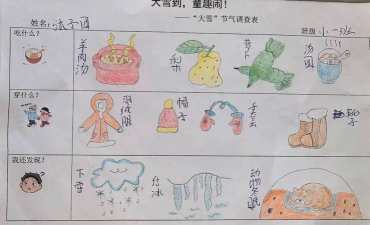 大雪到，童趣闹！
——“大雪”节气调查表
姓名：
班级 小一班
吃什么？
羊肉汤
梨
萝卜
汤圆
穿什么？
羽绒服
帽子
手套
靴子
我还发现？
下雪
结冰
动物冬眠